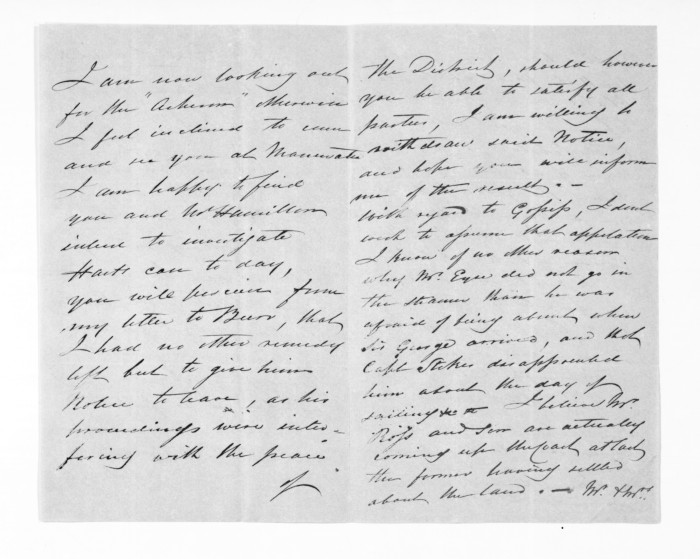 I am now looking out
for the "Acheron" otherwise
I feel inclined to come
and see you at Manawatu
I am happy to find
you and Mr Hamilton
intend to investigate
Harts case to day,
you will perceive from
my letter to Burr, that
I had no other remedy
left but to give him
Notice to leave, as his
proceedings were inter-
fering with the peace
of
the District, should however
you be able to satisfy all
parties, I am willing to
withdraw said Notice,
and hope you will inform
me of the result. —
With regard to Gossip, I dont
wish to assume that appelation
I know of no other reason
why Mr. Eyre did not go in
the steamer than he was
afraid of being absent when
Sir George arrived, and that
Capt Stokes disappointed
him about the day of
sailing I believe Mr.
Ross and are actually
coming up the Coast at last
the former having settled
about the land. — Mr. & Mrs.